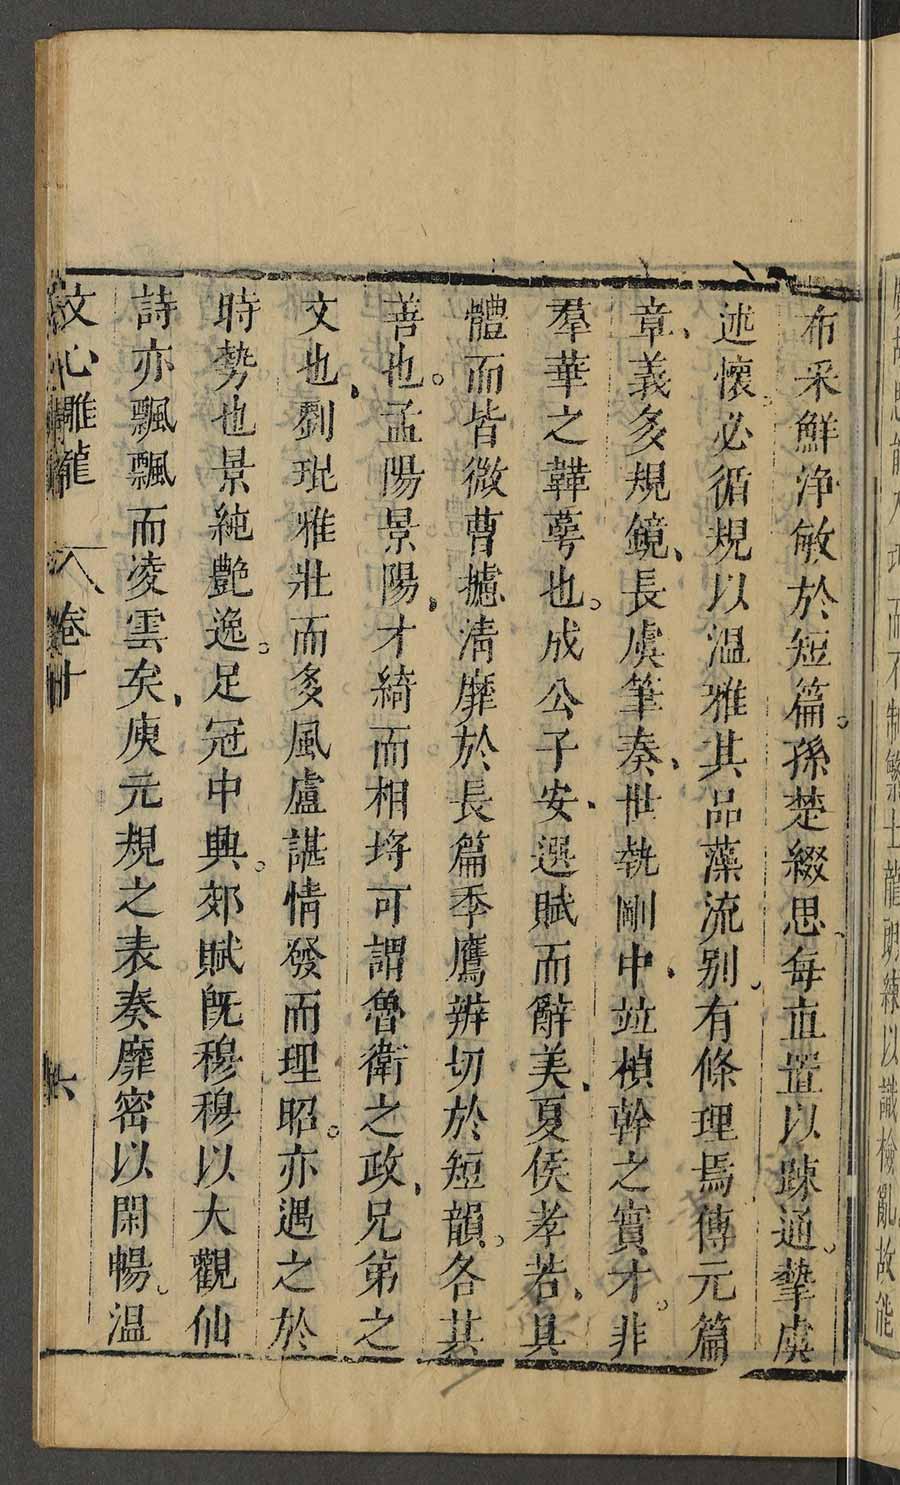 故思能入巧而不制繁士龍朗練以識檢亂故能
布采鮮浄敏於短篇。孫楚綴思、每直置以踈通。摯虞
述懷。必循規以温雅其品藻流别。有條理焉傳元篇
章、義多規鏡、長虞筆奏、世執剛中、竝楨幹之實才。非
羣華之韡萼也。成公子安、選賦而辭美、夏侯孝若、具
體而皆微曹攄清靡於長篇季鷹辨切於短韻。各其
善也。孟陽景陽、才綺而相埓可謂魯衛之政、兄第之
文也、劉琨雅壯而多風盧諶情發而理昭。亦遇之於
時勢也景純艷逸。足冠中興。郊賦旣穆穆以大觀仙
詩亦飄飄而凌雲矣、庾元規之表奏靡密以閑暢。温
文心雕龍 卷十 六